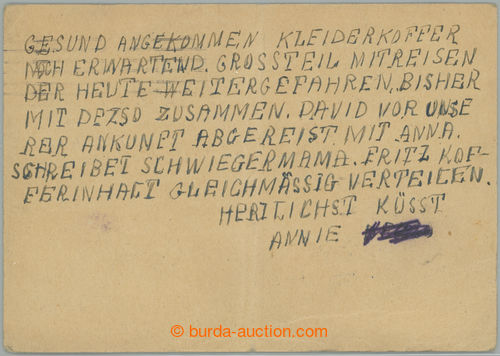 GESUND ANGEKOMMEN KLEIDERKOFFER
NOCH ERWARTEND. GROSSTEIL MITREISEN
DER HEUTE WEITERGEFAHREN. BISHER
MIT DEZSO ZUSAMMEN. DAVID VOR UNSE
RER ANKUNFT ABGEREIST MIT ANNA.
SCHREIBET SCHWIEGERMAMA. FRITZ KOF-
FERINHALT GLEICHMÄSSIG VERTEILEN.
HERZLICHST KÜSST
ANNIE
burda-auction.com